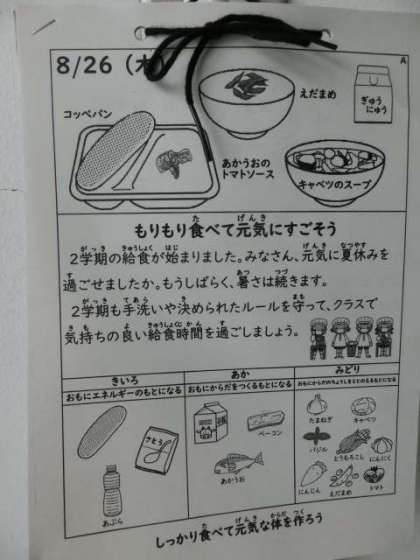 8/26（木） A
えだまめ
ぎゅうにゅう
コッペパン
あかうおの
トマトソース
キャベツのスープ
もりもり食べて元気にすごそう
2学期の給食が始まりました。みなさん、元気に夏休みを
過ごせましたか。もうしばらく、暑さは続きます。
2学期も手洗いや決められたルールを守って、クラスで
気持ちの良い給食時間を過ごしましょう。
きいろ あか みどり
おもにエネルギーのもとになる おもにからだをつくるもとになる おもにからだのちょうしをととのえるもとになる
さとう
あぶら
ベーコン
あかうお
たまねぎ キャベツ
バジル とうもろこし にんにく
にんじん えだまめ トマト
しっかり食べて元気な体を作ろう